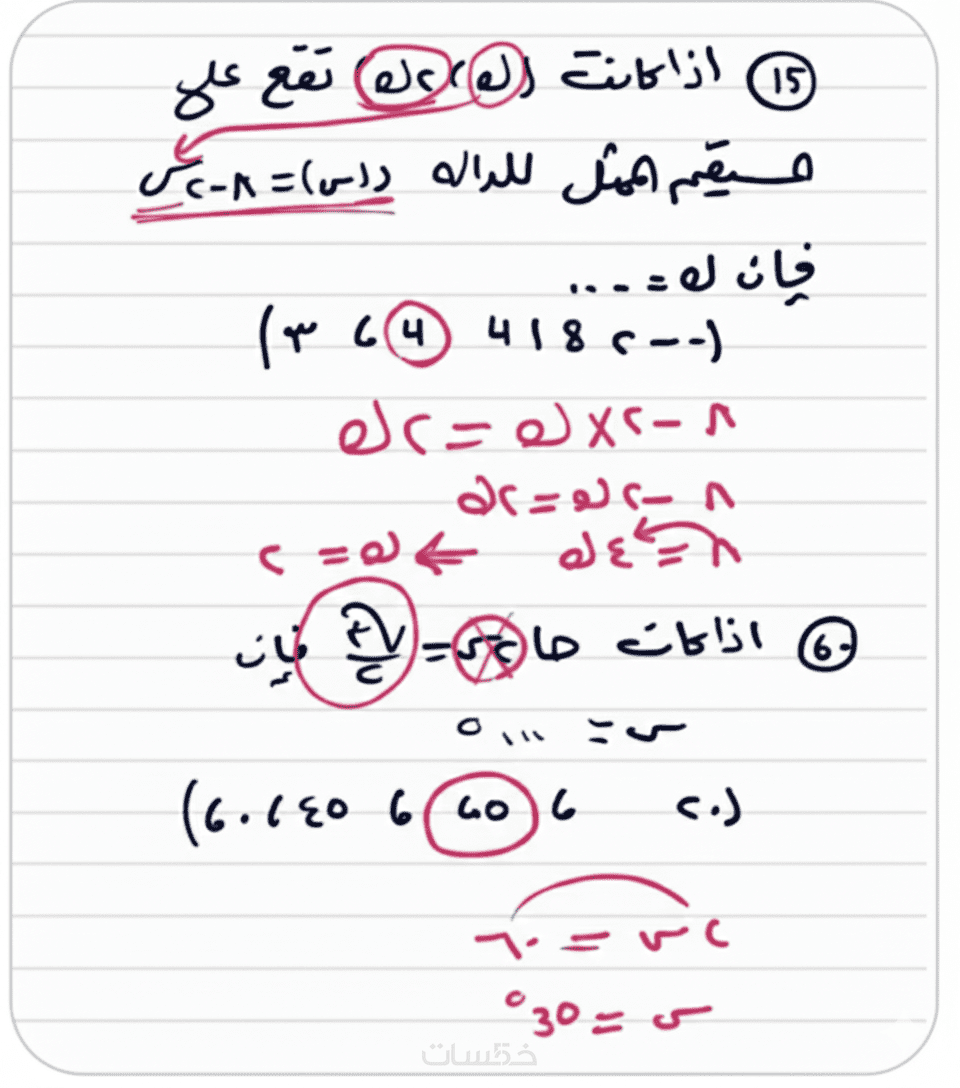 15 اذا كانت (ك ، ٢ك) تقع على
مستقيم ممثل للداله د(س) = ٨-٢س
فإن ك = ....
(--٢ 8 ا 4 4 6 ٣)
٨ - ٢×ك = ٢ك
٨ - ٢ك = ٢ك
٨ = ٤ك ← ك = ٢
6. اذا كات حا ٢س = √٣/٢ فإن
س = ...°
(٢٠ 6 60 6 ٤٥ ، 6٠)
٢س = ٦٠
س = 30°
خمسات